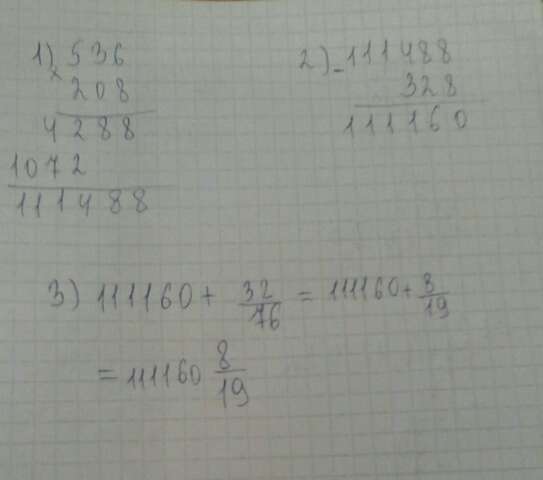 1) 536
×
208
4288
1072
111488
2) - 111488
328
111160
3) 111160 + 32/76 = 111160 + 8/19
= 111160 8/19